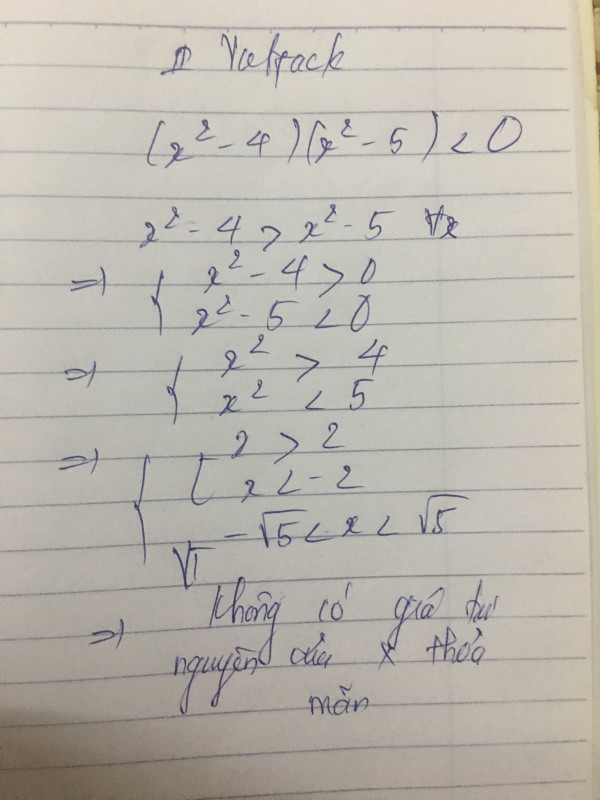 (x² - 4)(x² - 5) < 0
x² - 4 > x² - 5 ∀x
=> { x² - 4 > 0
x² - 5 < 0
=> { x² > 4
x² < 5
=> { [ x > 2
x < -2
-√5 < x < √5
=> Không có giá trị
nguyên của x thỏa
mãn